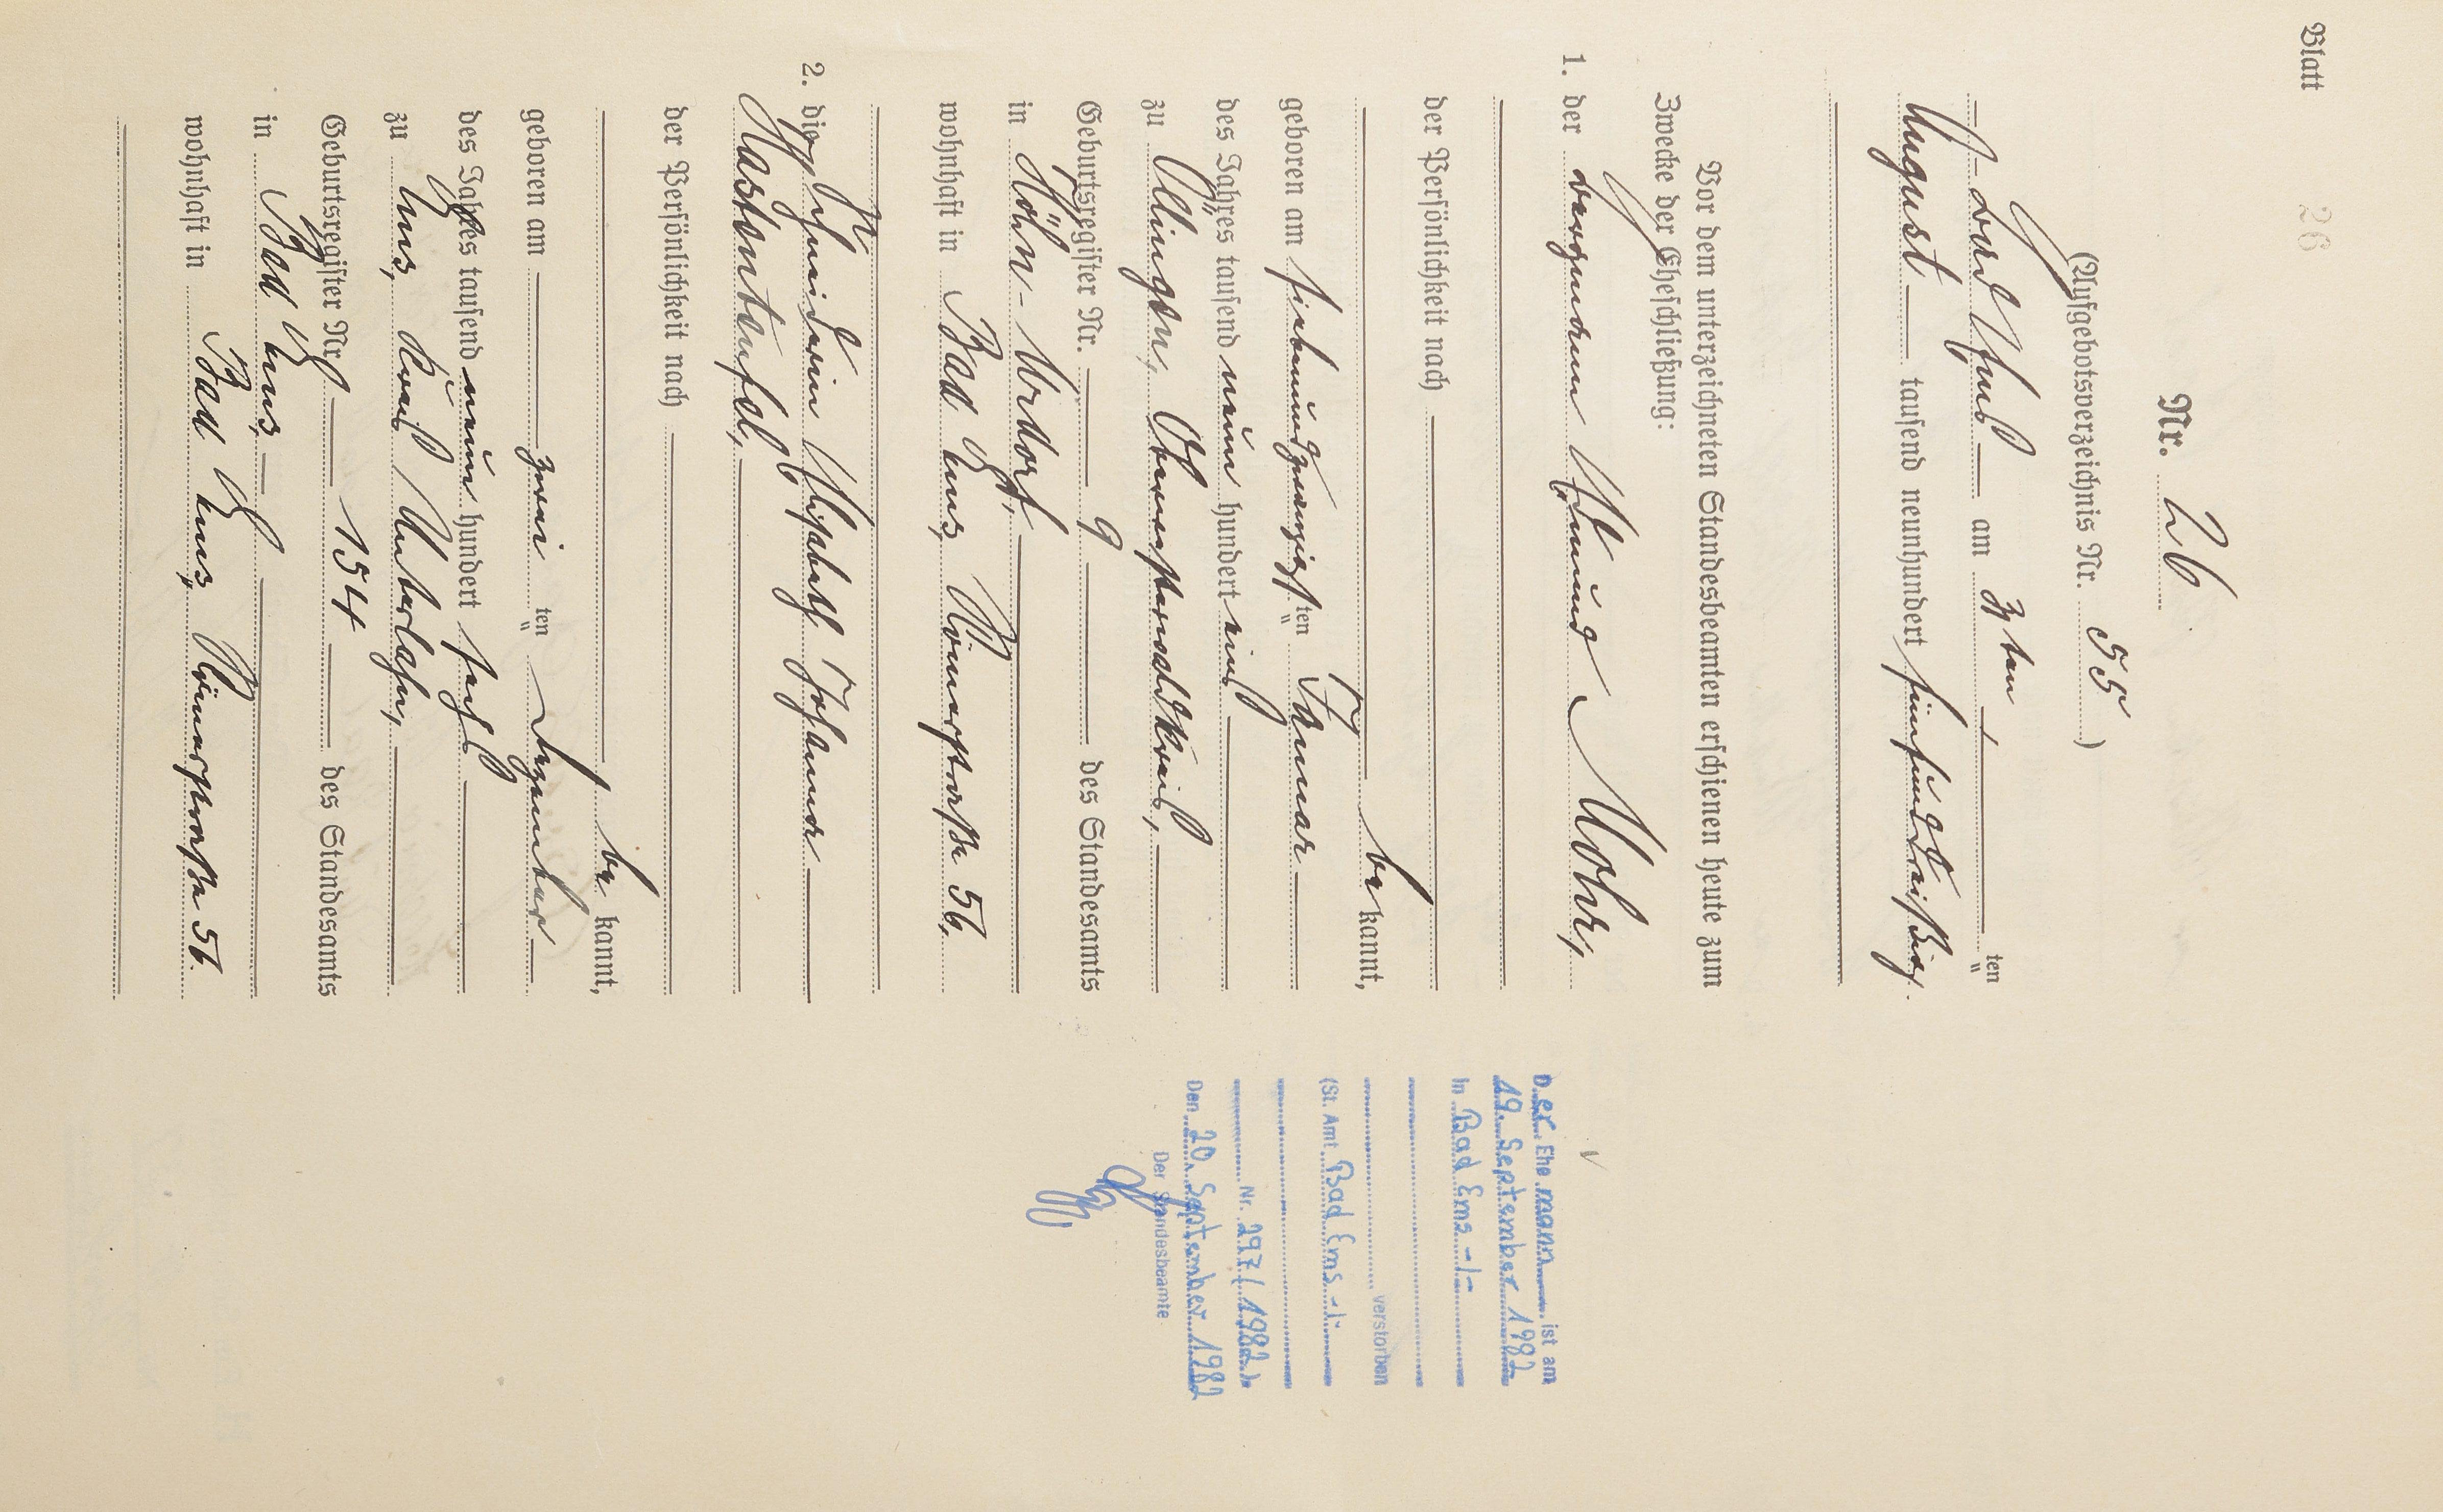 Blatt 26
Nr. 26
(Aufgebotsverzeichnis Nr. 55)
Bad Ems — am 3ten — ten
August — tausend neunhundert fünfunddreißig.
Vor dem unterzeichneten Standesbeamten erschienen heute zum
Zwecke der Eheschließung:
1. der Mohr,
der Persönlichkeit nach
be kannt,
geboren am siebenundzwanzigsten Januar
des Jahres tausend neun hundert eins
zu Ölingen, Oberwesterwaldkreis,
Geburtsregister Nr. 9 des Standesamts
in Höhn-Urdorf,
wohnhaft in Bad Ems, Römerstraße 56,
2. die Schneiderin Elisabeth Johanna
Hastenteufel,
der Persönlichkeit nach
be kannt,
geboren am zwei ten Dezember
des Jahres tausend neun hundert sechs
zu Ems, Kreis Unterlahn,
Geburtsregister Nr. 154 des Standesamts
in Bad Ems,
wohnhaft in Bad Ems, Römerstraße 56.
Der Ehemann ist am
19. September 1982
in Bad Ems -/-
verstorben
(St. Amt Bad Ems -/-
Nr. 297/1982).
Den 20. September 1982
Der Standesbeamte